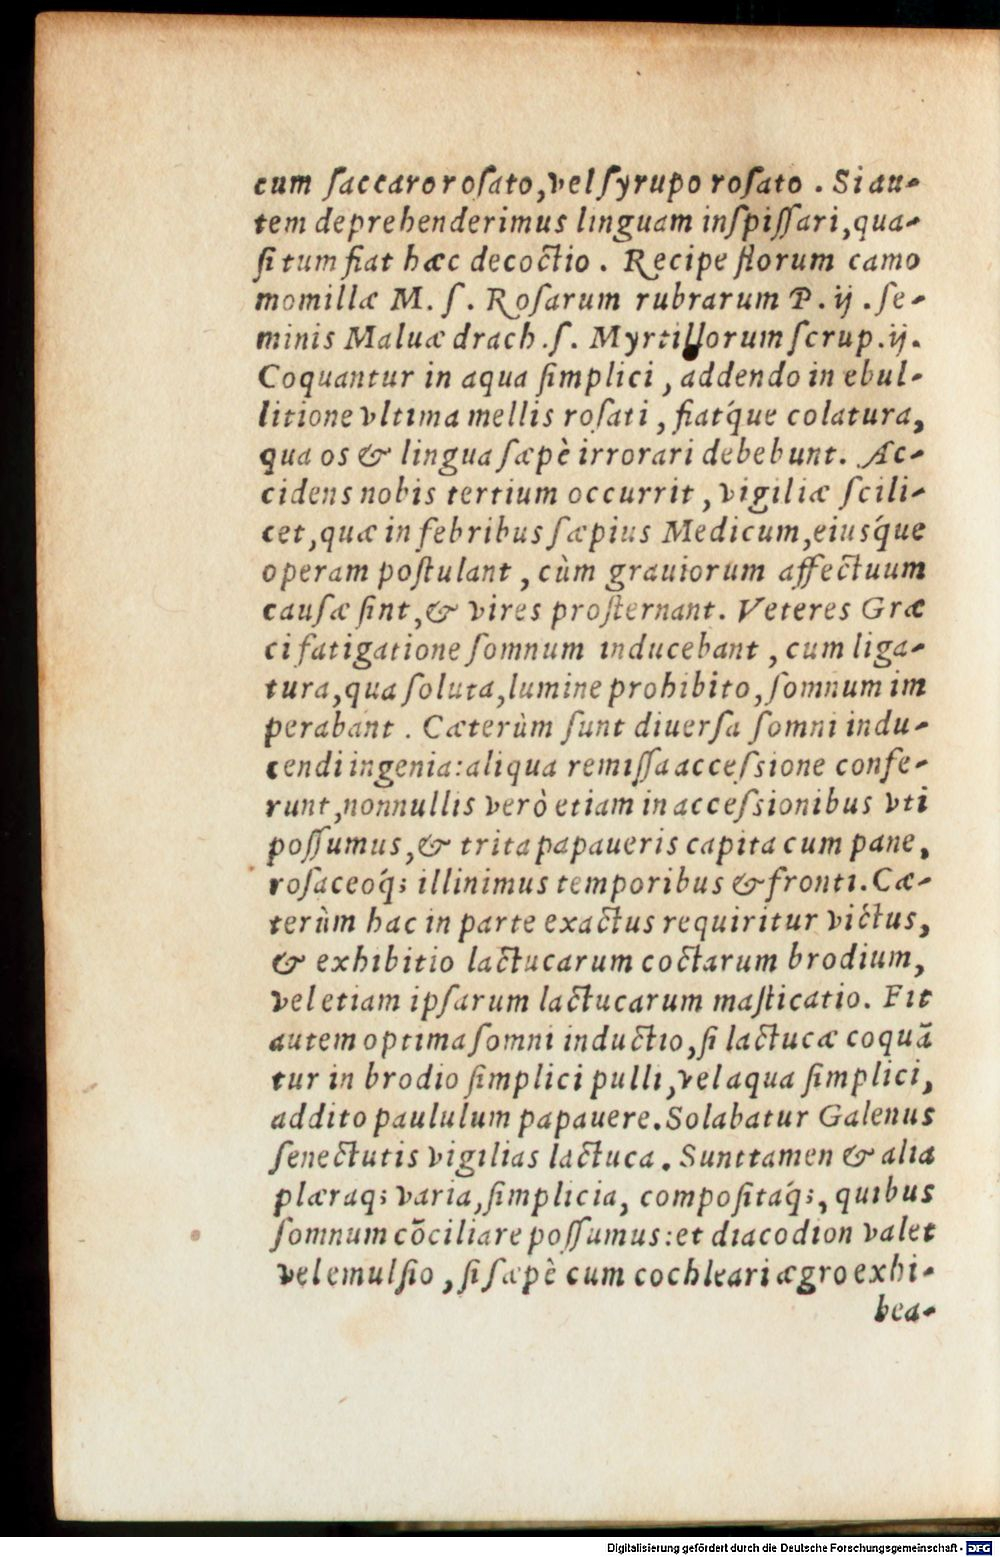 cum ſaccaro roſato, vel ſyrupo roſato. Si au-
tem deprehenderimus linguam inſpiſſari, qua-
ſi tum fiat hæc decoctio. Recipe florum camo
momillæ M. ſ. Roſarum rubrarum P. ij. ſe-
minis Maluæ drach. ſ. Myrtillorum ſcrup. ij.
Coquantur in aqua ſimplici, addendo in ebul-
litione vltima mellis roſati, fiatq́ue colatura,
qua os & lingua ſæpè irrorari debebunt. Ac-
cidens nobis tertium occurrit, vigiliæ ſcili-
cet, quæ in febribus ſæpius Medicum, eiusq́ue
operam poſtulant, cùm grauiorum affectuum
cauſæ ſint, & vires proſternant. Veteres Græ
ci fatigatione ſomnum inducebant, cum liga-
tura, qua ſoluta, lumine prohibito, ſomnum im
perabant. Cæterùm ſunt diuerſa ſomni indu-
cendi ingenia: aliqua remiſſa acceſsione confe-
runt, nonnullis verò etiam in acceſsionibus vti
poſſumus, & trita papaueris capita cum pane,
roſaceoq́; illinimus temporibus & fronti. Cæ-
terùm hac in parte exactus requiritur victus,
& exhibitio lactucarum coctarum brodium,
vel etiam ipſarum lactucarum maſticatio. Fit
autem optima ſomni inductio, ſi lactucæ coquā
tur in brodio ſimplici pulli, vel aqua ſimplici,
addito paululum papauere. Solabatur Galenus
ſenectutis vigilias lactuca. Sunt tamen & alia
plæraq; varia, ſimplicia, compoſitaq́;, quibus
ſomnum cōciliare poſſumus: et diacodion valet
vel emulſio, ſi ſæpè cum cochleari ægro exhi-
bea-
Digitalisierung gefördert durch die Deutsche Forschungsgemeinschaft - DFG